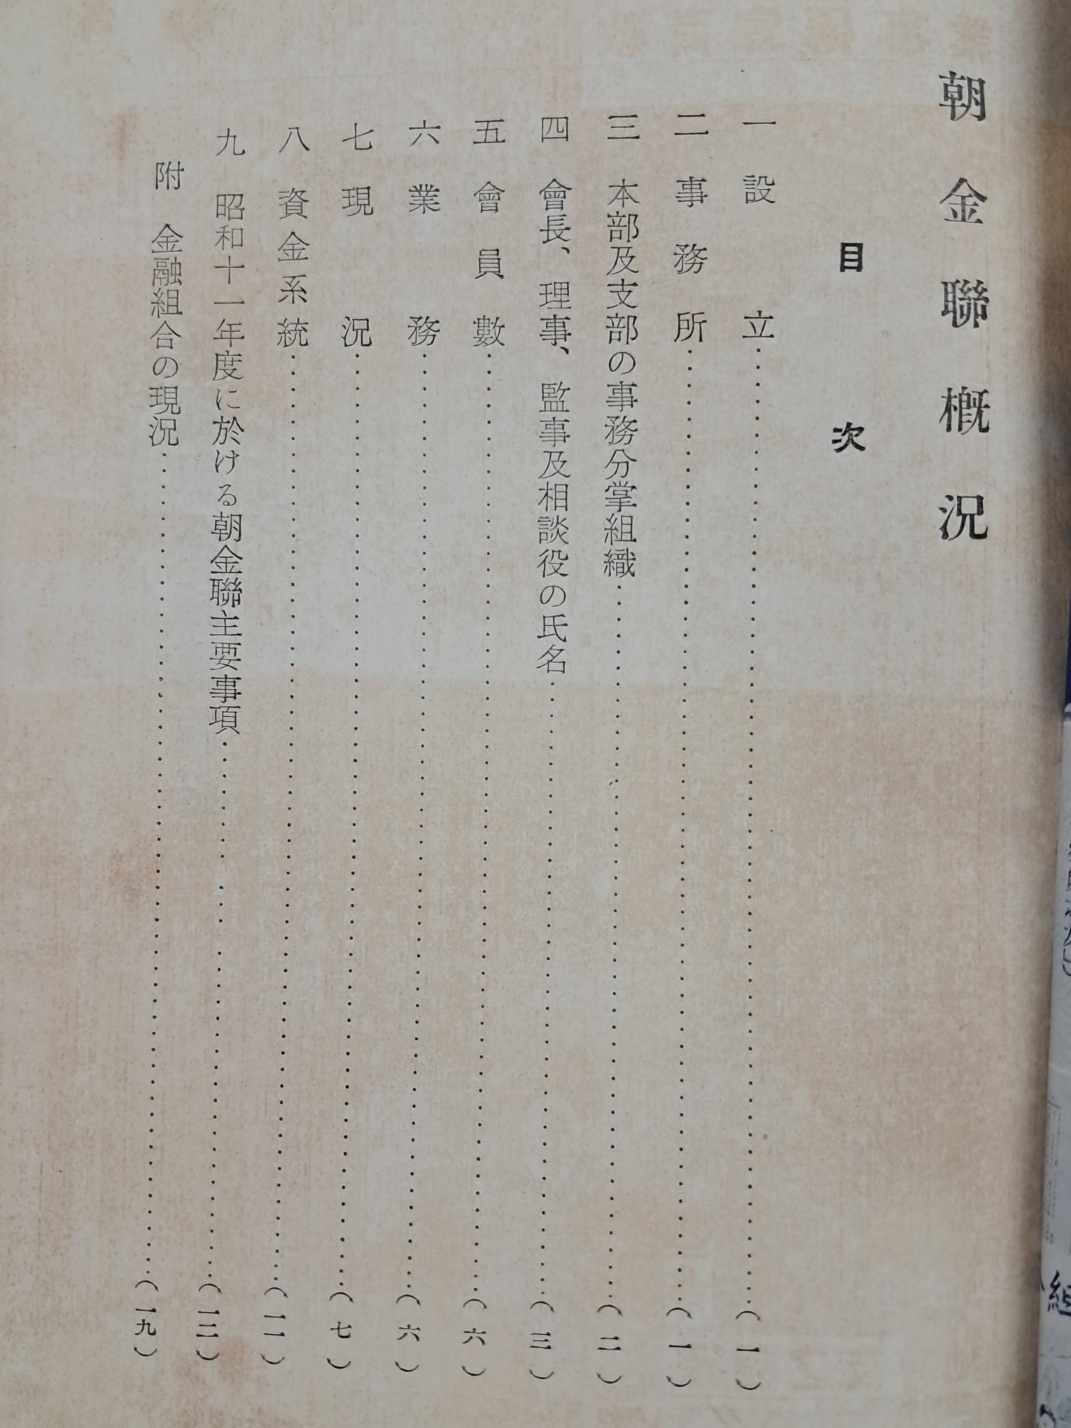 朝金聯概況
目次
一 設立……(一)
二 事務所……(一)
三 本部及支部の事務分掌組織……(二)
四 會長、理事、監事及相談役の氏名……(三)
五 會員數……(六)
六 業務……(六)
七 現況……(七)
八 資金系統……(一一)
九 昭和十一年度に於ける朝金聯主要事項……(一二)
附 金融組合の現況……(一九)
組